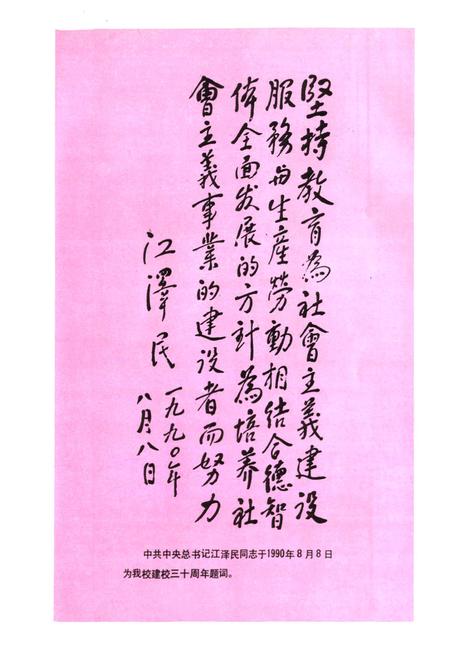 堅持教育為社會主義建設
服務与生産勞動相结合德智
体全面发展的方针為培养社
會主義事業的建设者而努力
江澤民
一九九〇年
八月八日
中共中央总书记江泽民同志于1990年8月8日
为我校建校三十周年题词。